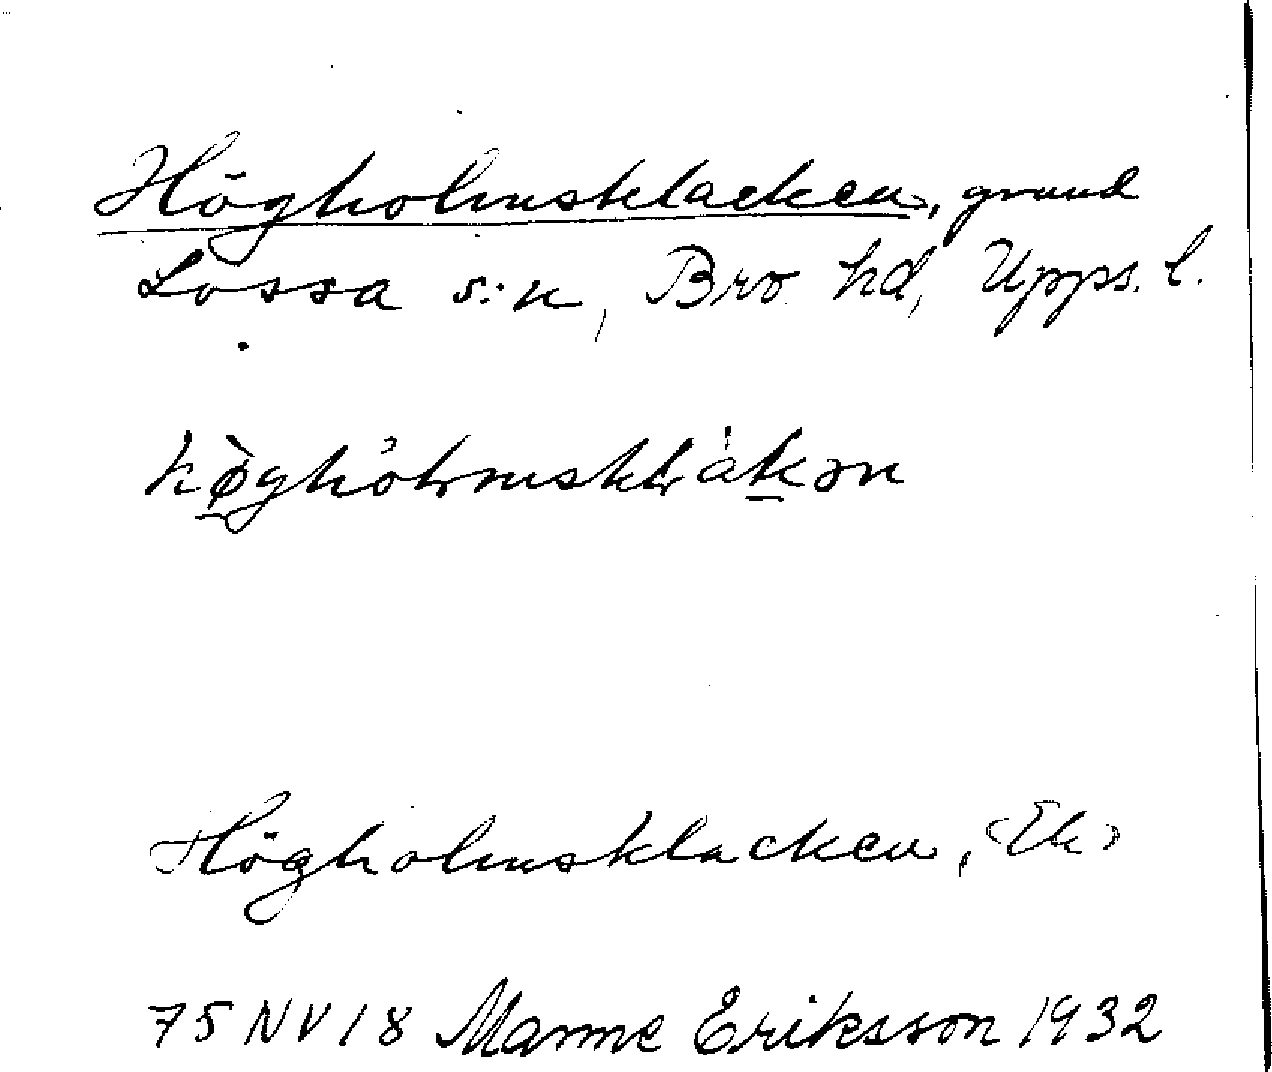 Högholmsklacken, grund
Lossa s:n, Bro hd, Upps. l.
Högholmsklacken, (Ek)
75 NV 18 Manne Eriksson 1932